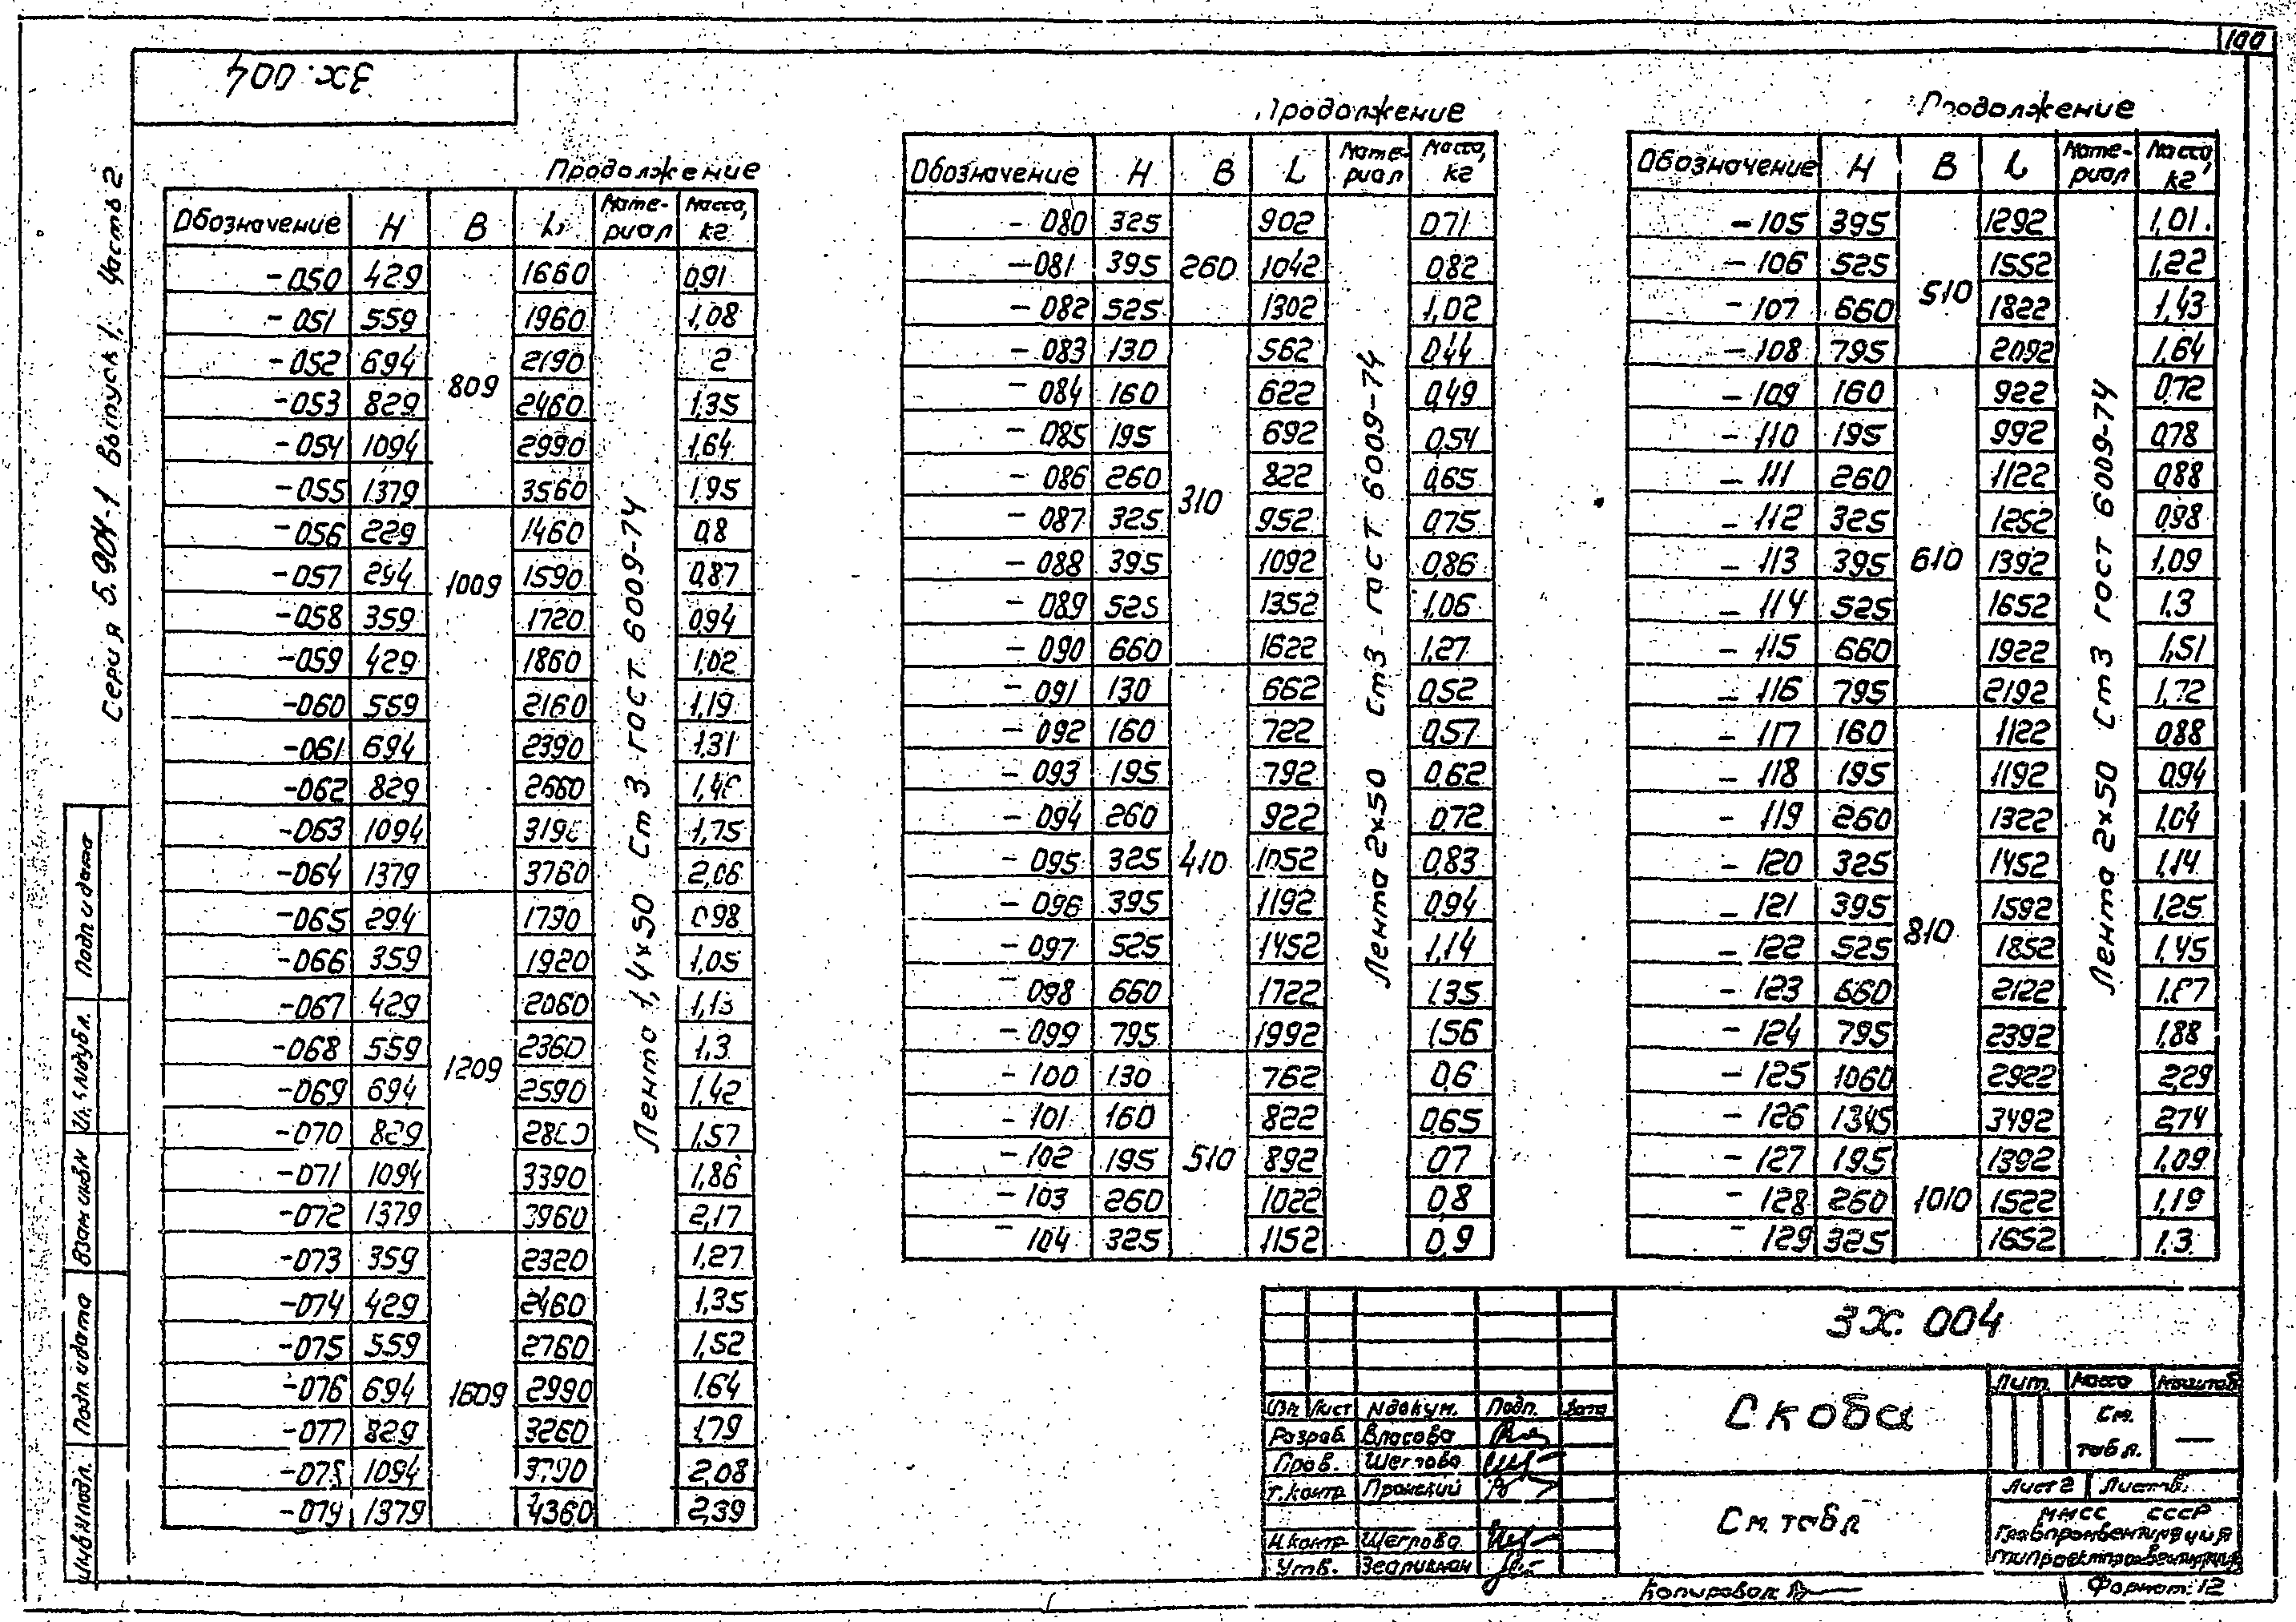 100
3х. 004
Серия 5.904-1 Выпуск 1. Часть 2
Продолжение
Обозначение H B L Мате-риал Масса, кг
-050 429 809 1660 Лента 1,4×50 Ст 3 гост 6009-74 0,91
-051 559 1960 1,08
-052 694 2190 2
-053 829 2460 1,35
-054 1094 2990 1,64
-055 1379 3560 1,95
-056 229 1009 1460 0,8
-057 294 1590 0,87
-058 359 1720 0,94
-059 429 1860 1,02
-060 559 2160 1,19
-061 694 2390 1,31
-062 829 2660
-063 1094 1,75
-064 1379 3760 2,06
-065 294 1209 1790 0,98
-066 359 1920 1,05
-067 429 2060 1,13
-068 559 2360 1,3
-069 694 2590 1,42
-070 829 1,57
-071 1094 3390 1,86
-072 1379 3960 2,17
-073 359 1609 2320 1,27
-074 429 2460 1,35
-075 559 2760 1,52
-076 694 2990 1,64
-077 829 3260 1,79
-078 1094 3790 2,08
-079 1379 4360 2,39
Продолжение
Обозначение H B L Мате-риал Масса, кг
- 080 325 260 902 Лента 2×50 Ст3 гост 6009-74 0,71
- 081 395 1042 0,82
- 082 525 1302 1,02
- 083 130 310 562 0,44
- 084 160 622 0,49
- 085 195 692 0,54
- 086 260 822 0,65
- 087 325 952 0,75
- 088 395 1092 0,86
- 089 525 1352 1,06
- 090 660 1622 1,27
- 091 130 410 662 0,52
- 092 160 722 0,57
- 093 195 792 0,62
- 094 260 922 0,72
- 095 325 1052 0,83
- 096 395 1192 0,94
- 097 525 1452 1,14
- 098 660 1722 1,35
- 099 795 1992 1,56
- 100 130 510 762 0,6
- 101 160 822 0,65
- 102 195 892 0,7
- 103 260 1022 0,8
- 104 325 1152 0,9
Продолжение
Обозначение H B L Мате-риал Масса, кг
- 105 395 510 1292 Лента 2×50 Ст 3 гост 6009-74 1,01
- 106 525 1552 1,22
- 107 660 1822 1,43
- 108 795 2092 1,64
- 109 160 610 922 0,72
- 110 195 992 0,78
- 111 260 1122 0,88
- 112 325 1252 0,98
- 113 395 1392 1,09
- 114 525 1652 1,3
- 115 660 1922 1,51
- 116 795 2192 1,72
- 117 160 810 1122 0,88
- 118 195 1192 0,94
- 119 260 1322 1,04
- 120 325 1452 1,14
- 121 395 1592 1,25
- 122 525 1852 1,45
- 123 660 2122
- 124 795 2392 1,88
- 125 1060 2922 2,29
- 126 1345 3492 2,74
- 127 195 1010 1392 1,09
- 128 260 1522 1,19
- 129 325 1652 1,3
Подп и дата
Взам инв N
Подп. и дата
Инв N подл.
3х. 004
Скоба
Лит. Масса Масштаб
См. табл. —
Лист 2 Листов
Изм Лист N докум. Подп. Дата
Разраб. Власова
Пров. Щеглова
Т.контр Пронский
Н.контр Щеглова
Утв.
См. табл
ММСС СССР
Главпромвентиляция
Копировал:
Формат: 12